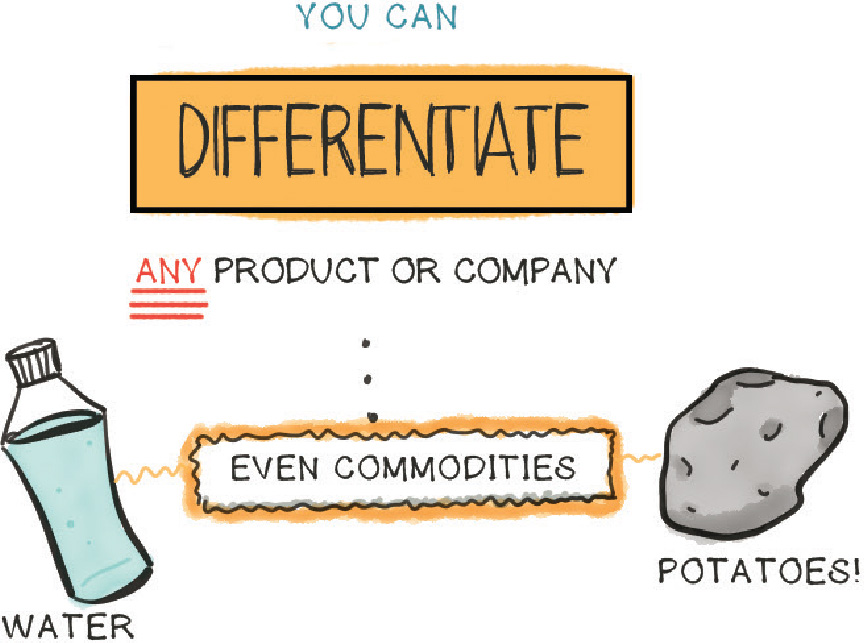 YOU CAN
DIFFERENTIATE
ANY PRODUCT OR COMPANY
EVEN COMMODITIES
POTATOES!
WATER